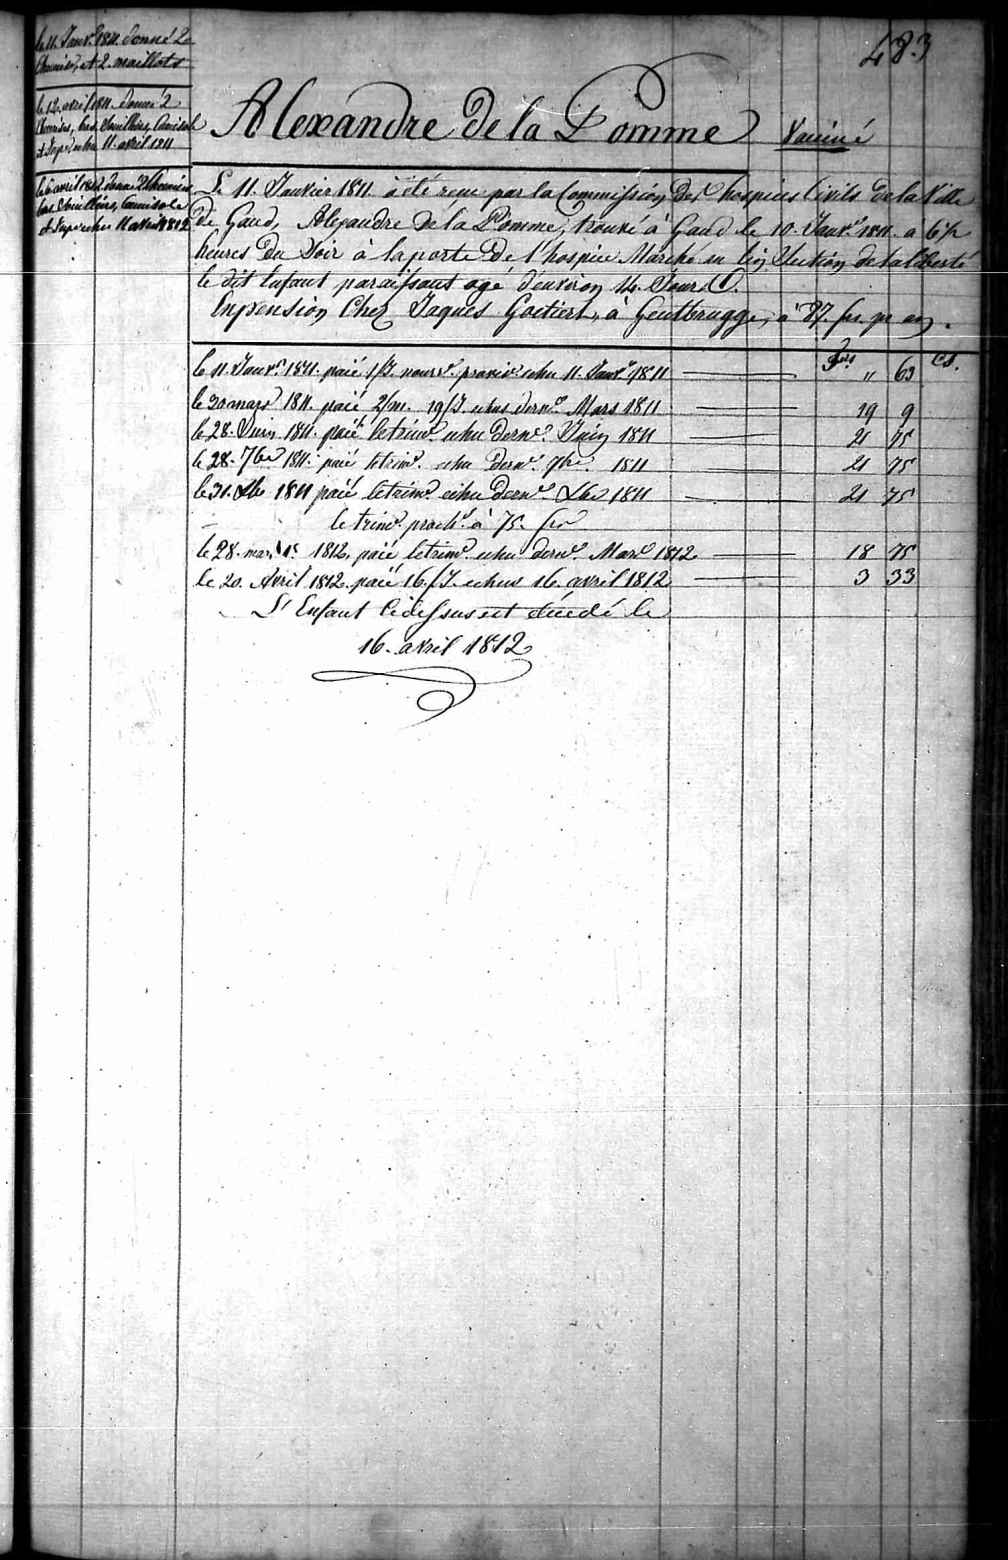 483
le 11. Janv.r 1811. donné 2
Chemises, et 2. maillots
le 12. avril 1811. donné 2
Chemises, bas, Souilliers, Camisole
et Jupe echu 11. avril 1811
le 6 avril 1812 donné 2 Chemises
bas Souilliers, Camisole
et Jupe echu 11 avril 1812
Alexandre de la Pomme Vacciné
Le 11. Janvier 1811. à été reçu par la Commission Des hospices Civils de la Ville
de Gand, Alexandre de la Pomme, trouvé à Gand le 10. Janv.r 1811. a 6½
heures Du Soir à la porte De l'hospice Marché au lin Section de la liberté
le dit Enfant paraissant agé d'environ 14. Jours.
En pension Chez Jaques Goetiert, à Gentbrugge, à 87 frs pr an.
frs Cs.
le 11. Janv.r 1811. paié 1/J. nourr.e provis.e echu 11. Janv.r 1811 " 63
le 30 mars 1811. paié 2/m. 19/J. echus dern.r Mars 1811 19 9
le 28. Juin 1811. paié le trim.e echu dern.r Juin 1811 21 75
le 28. 7bre 1811. paié le trim.e echu dern.r 7bre 1811 21 75
le 31. Xbre 1811 paié le trim.e echu dern.r Xbre 1811 21 75
le trim.e proch.n à 75. frs
le 28. mars 1812. paié le trim.e echu dern.r Mars 1812 18 75
le 20. Avril 1812. paié 16/J. echus 16. avril 1812 3 33
L'Enfant Cidessus est décédé le
16. avril 1812